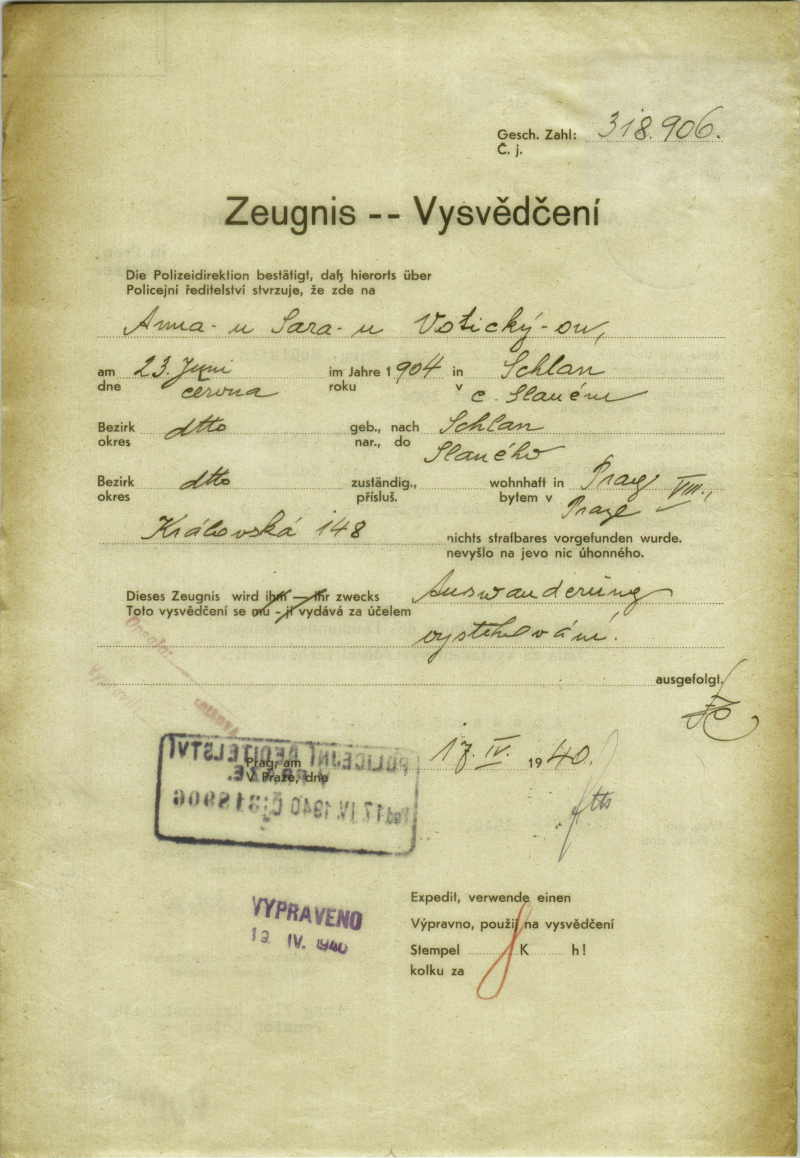 Gesch. Zahl: 318.906.
Č. j.
Zeugnis -- Vysvědčení
Die Polizeidirektion bestätigt, daß hierorts über
Policejní ředitelství stvrzuje, že zde na
Anna - u Sara - u Votický - ou,
am 23. Juni im Jahre 1904 in Schlan
dne června roku v c. Slaném
Bezirk dtto geb., nach Schlan
okres nar., do Slaného
Bezirk dtto zuständig., wohnhaft in Prag VIII.,
okres přísluš. bytem v Praze
Královská 148 nichts strafbares vorgefunden wurde.
nevyšlo na jevo nic úhonného.
Dieses Zeugnis wird ihm — ihr zwecks Auswanderung
Toto vysvědčení se mu - jí vydává za účelem
vystěhování.
ausgefolgt.
POLICEJNÍ ŘEDITELSTVÍ
Prag, am 17. IV. 1940.
V Praze, dne
17. IV. 1940 Čj 318906
VYPRAVENO
19. IV. 1940
Expedit, verwende einen
Výpravno, použij na vysvědčení
Stempel K h!
kolku za